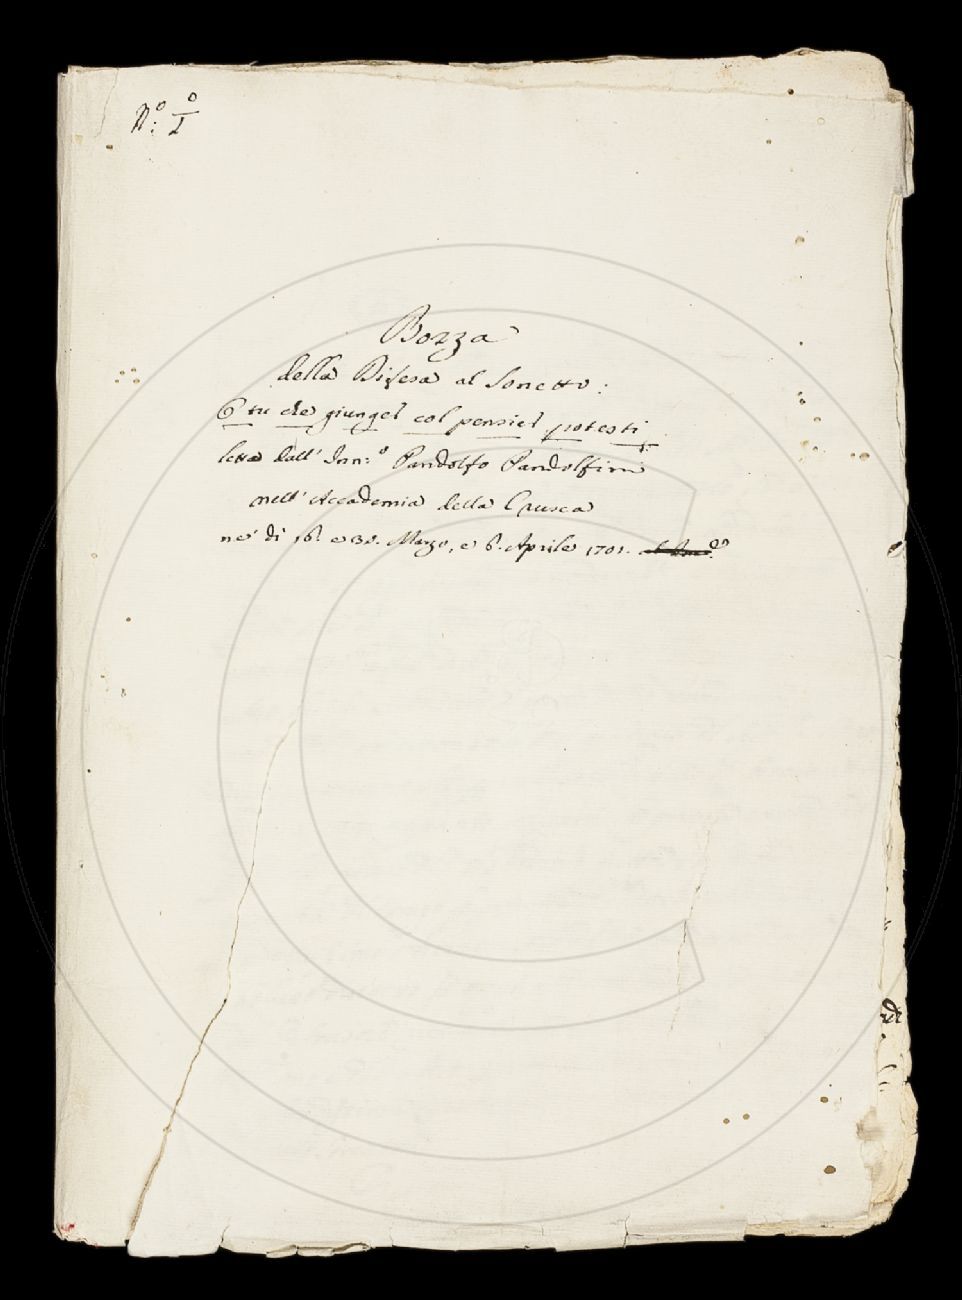 N.° I°
Bozza
della Difesa al Sonetto:
O tu che giungel col pensiel potesti
letta dall' Inn.° Pandolfo Pandolfini
nell' Accademia della Crusca
ne' dì 16. e 30. Marzo, e 6. Aprile 1701.